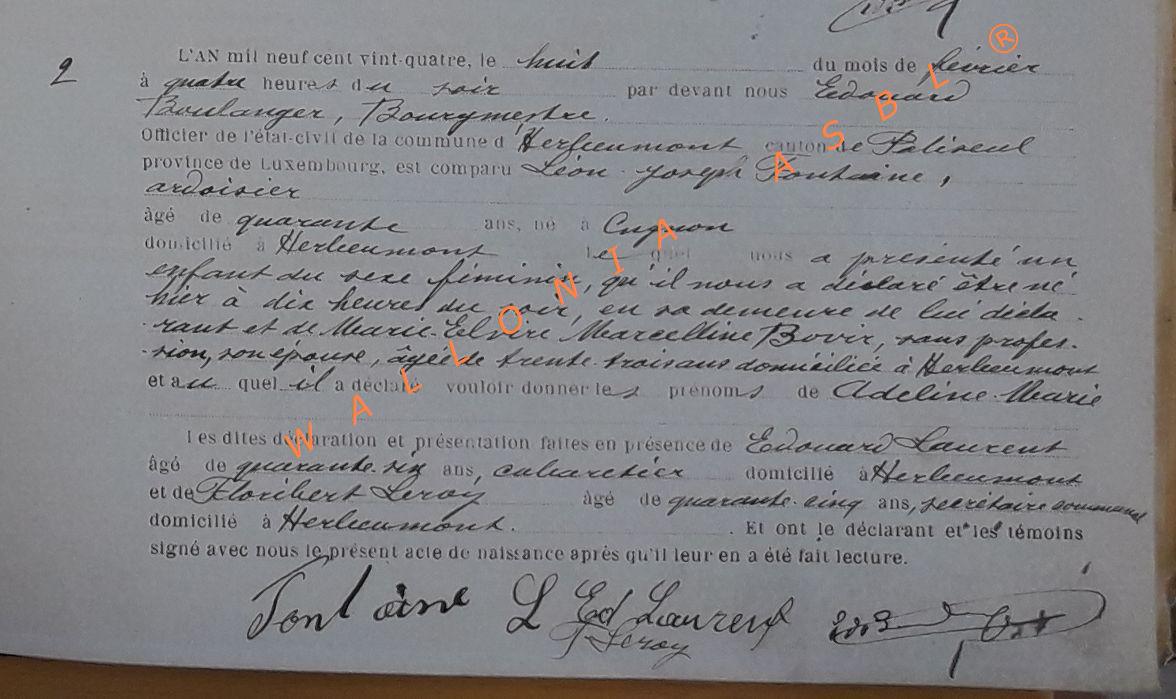 2
L'AN mil neuf cent vint-quatre, le huit du mois de février
à quatre heures du soir par devant nous Edouard
Boulanger, Bourgmestre.
Officier de l'état-civil de la commune d'Herbeumont canton de Paliseul
province de Luxembourg, est comparu Léon-Joseph Fontaine,
ardoisier
âgé de quarante ans, né à Cugnon
domicilié à Herbeumont lequel nous a présenté un
enfant du sexe féminin, qu'il nous a déclaré être né
hier à dix heures du soir, en sa demeure de lui décla-
rant et de Marie-Elvire Marcelline Bovir, sans profes-
sion, son épouse, âgée de trente-trois ans domiciliée à Herbeumont
et au quel il a déclaré vouloir donner les prénoms de Adeline-Marie
Les dites déclaration et présentation faites en présence de Edouard Laurent
âgé de quarante-six ans, cabaretier domicilié à Herbeumont
et de Floribert Leroy âgé de quarante-cinq ans, secrétaire communal
domicilié à Herbeumont. Et ont le déclarant et les témoins
signé avec nous le présent acte de naissance après qu'il leur en a été fait lecture.
Fontaine L Ed Laurent
F Leroy
WALLONIA ASBL ®